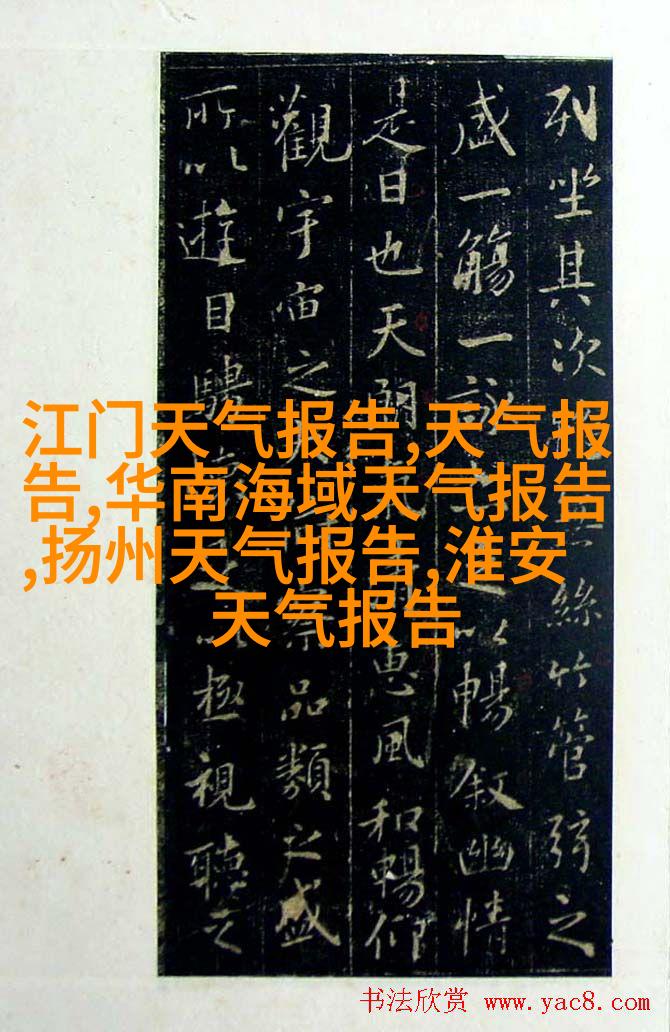 列坐其次絲竹管弦之
盛一觴一詠以暢叙幽情
是日也天朗惠風和暢仰
觀宇宙之察品類之盛
所以遊目騁以極視聽之
江门天气报告,天气报
告,华南海域天气报告
,扬州天气报告,淮安
天气报告
书法欣赏 www.yac8.com